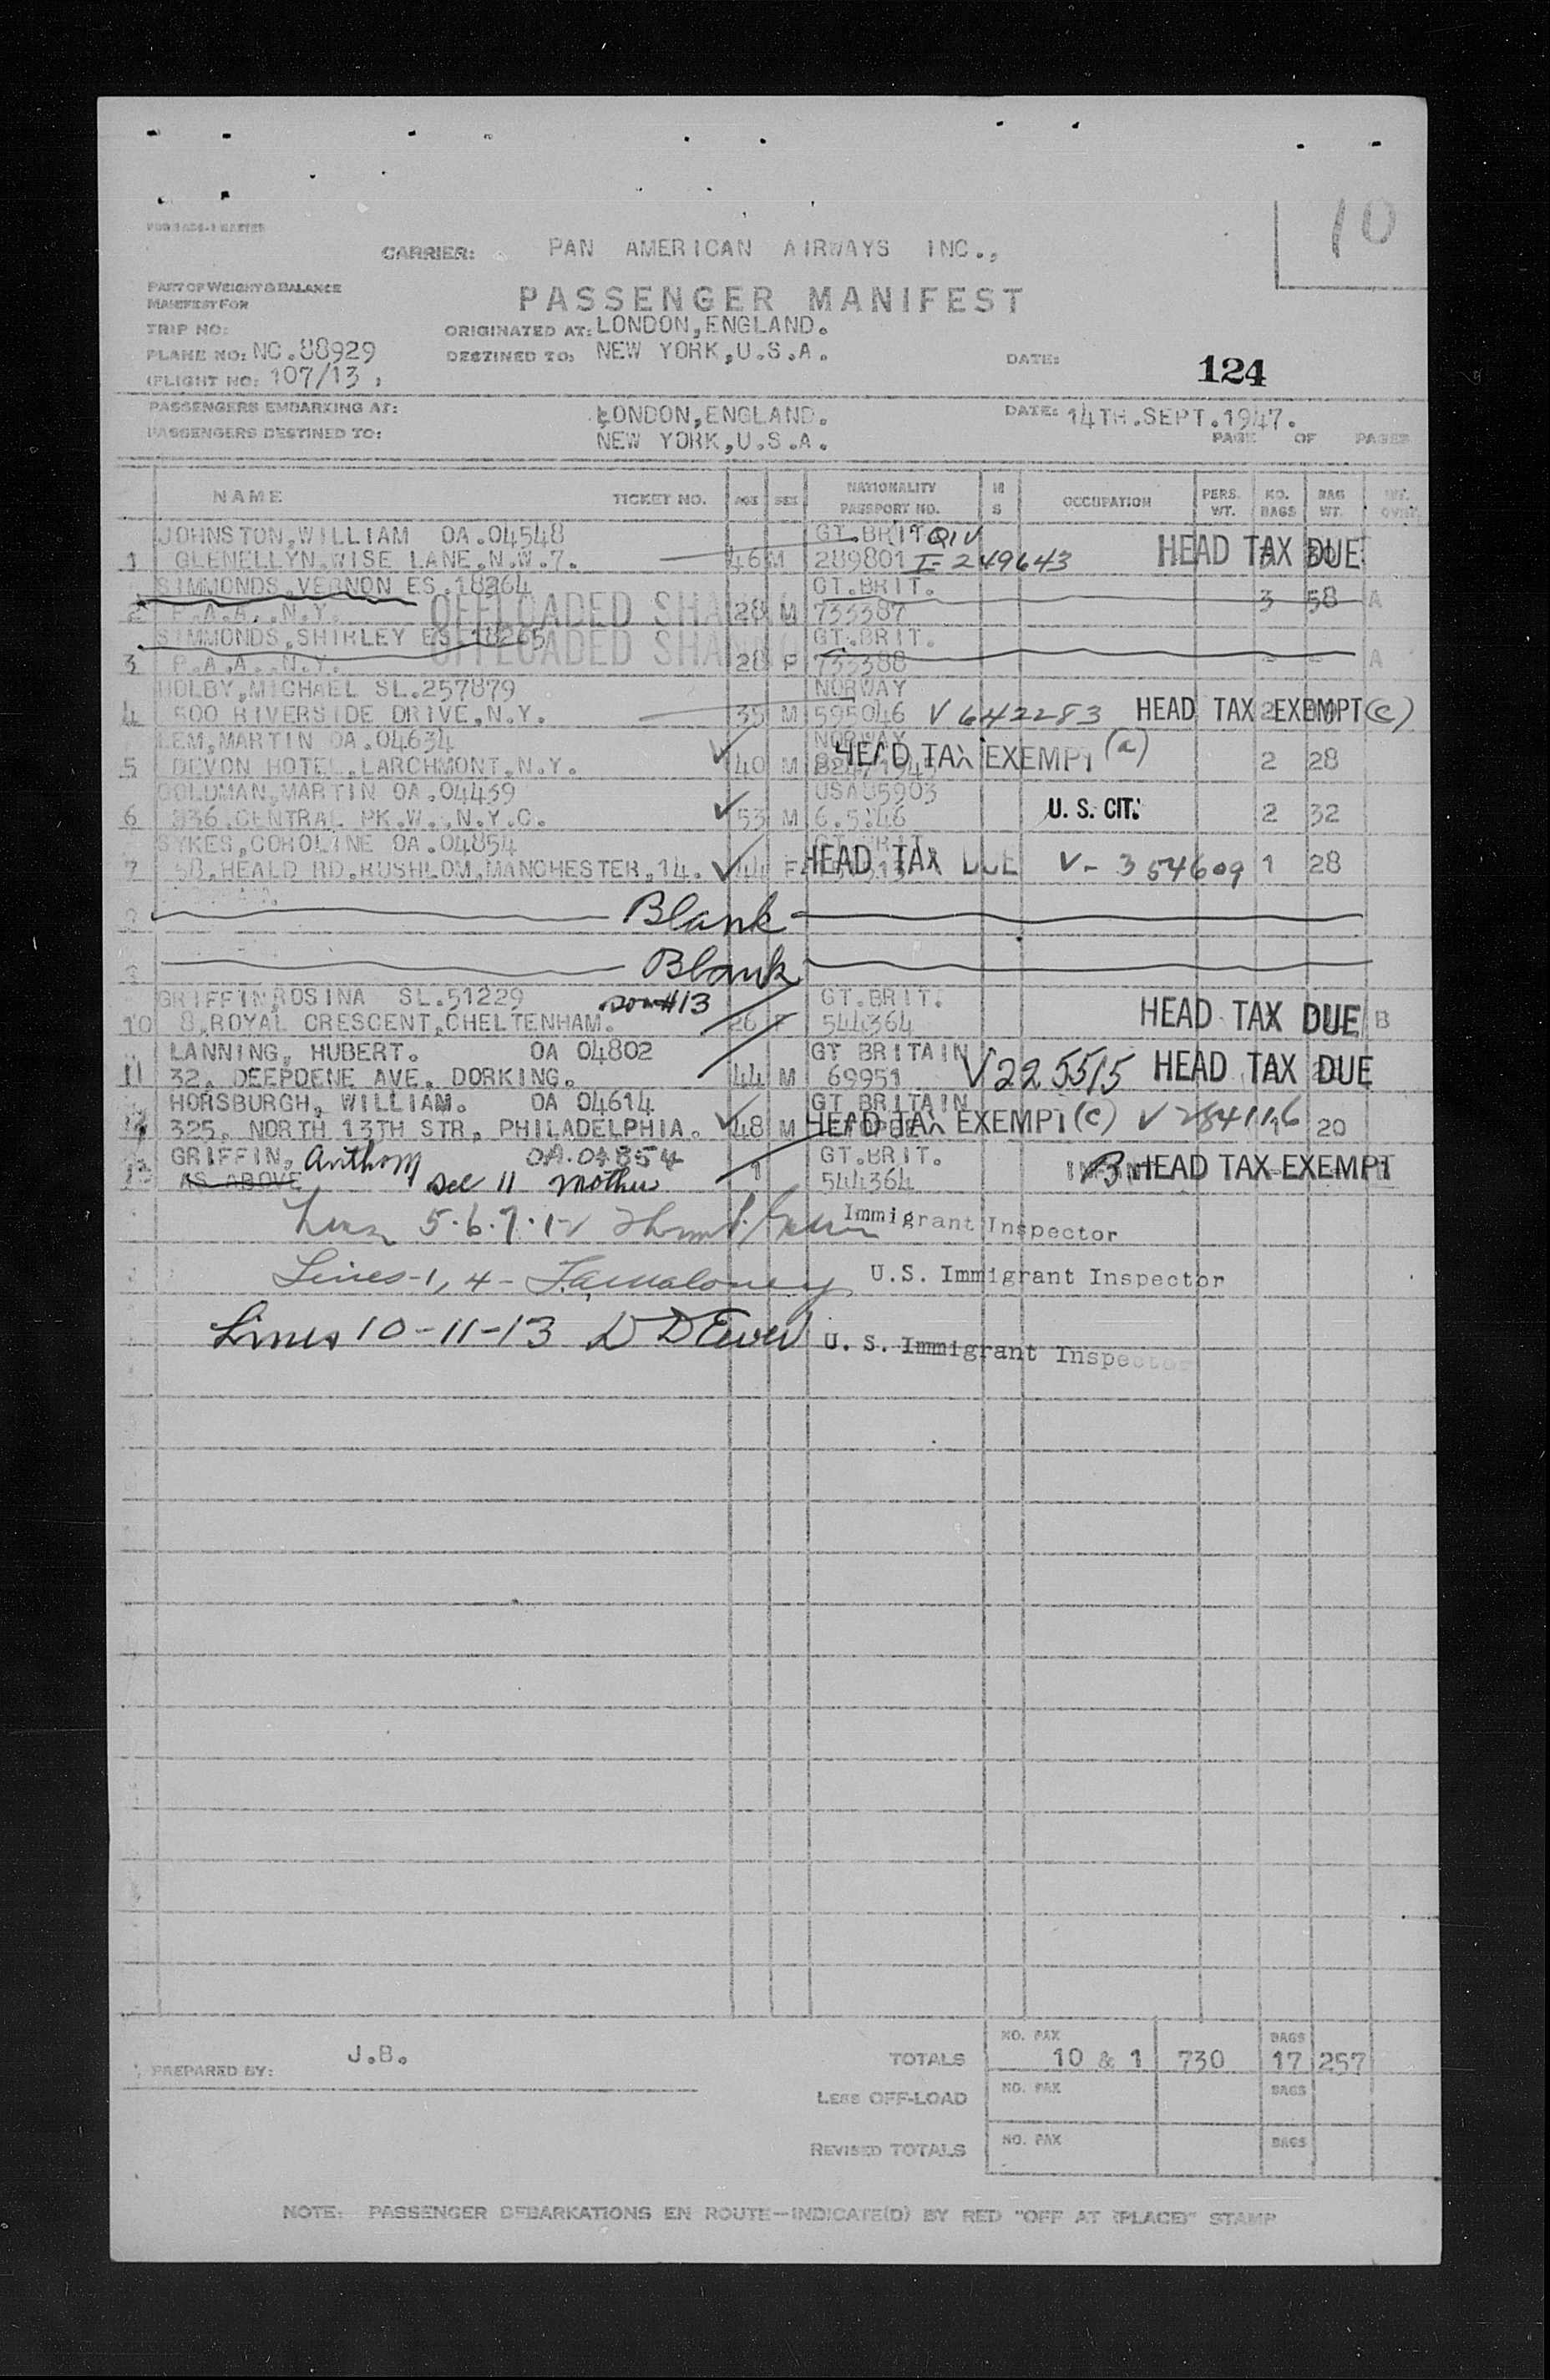 10
CARRIER: PAN AMERICAN AIRWAYS INC.,
PART OF WEIGHT & BALANCE
MANIFEST FOR
PASSENGER MANIFEST
TRIP NO:
ORIGINATED AT: LONDON,ENGLAND.
PLANE NO: NC.88929
DESTINED TO: NEW YORK,U.S.A.
DATE:
124
(FLIGHT NO: 107/13 )
PASSENGERS EMBARKING AT: LONDON,ENGLAND.
DATE: 14TH.SEPT.1947.
PASSENGERS DESTINED TO: NEW YORK,U.S.A.
PAGE OF PAGES
NAME TICKET NO. AGE SEX NATIONALITY PASSPORT NO. M S OCCUPATION PERS. WT. NO. BAGS BAG WT.
JOHNSTON,WILLIAM OA.04548 GT.BRIT QIV
1 GLENELLYN,WISE LANE,N.W.7. 46 M 289801 I-249643 HEAD TAX DUE
SIMMONDS,VERNON ES.18264 GT.BRIT.
2 P.A.A. N.Y. OFFLOADED SHA 28 M 733387 3 58 A
SIMMONDS,SHIRLEY ES.18265 GT.BRIT.
3 P.A.A. N.Y. OFFLOADED SHA 28 F 733388 - - A
MICHAEL SL.257879 NORWAY
4 500 RIVERSIDE DRIVE,N.Y. 35 M 595046 V 642283 HEAD TAX EXEMPT (c)
LEM,MARTIN OA.04634 NORWAY
5 DEVON HOTEL,LARCHMONT,N.Y. 40 M HEAD TAX EXEMPT (a) 2 28
GOLDMAN,MARTIN OA.04439 USA
6 336,CENTRAL PK.W.,N.Y.C. 53 M U.S. CIT. 2 32
SYKES,COROLINE OA.04854
7 58,HEALD RD,RUSHLOM,MANCHESTER,14. 44 F HEAD TAX DUE V-354609 1 28
Blank
Blank
GRIFFIN,ROSINA SL.51229 son #13 GT.BRIT.
10 8,ROYAL CRESCENT,CHELTENHAM. 26 F 544364 HEAD TAX DUE B
LANNING, HUBERT. OA 04802 GT BRITAIN
11 32, DEEPDENE AVE, DORKING. 44 M 69951 V225515 HEAD TAX DUE
HORSBURGH, WILLIAM. OA 04614 GT BRITAIN
325, NORTH 13TH STR, PHILADELPHIA. 48 M HEAD TAX EXEMPT (c) V 284116 20
GRIFFIN, Anthony OA.04854 GT.BRIT.
13 AS ABOVE see 11 mother 1 544364 HEAD TAX EXEMPT
5.6.7.12 Immigrant Inspector
Lines-1,4- F.A.Maloney U.S. Immigrant Inspector
Lines 10-11-13 U. S. Immigrant Inspector
PREPARED BY: J.B.
TOTALS NO. PAX 10 & 1 730 BAGS 17 257
LESS OFF-LOAD NO. PAX BAGS
REVISED TOTALS NO. PAX BAGS
NOTE: PASSENGER DEBARKATIONS EN ROUTE—INDICATE(D) BY RED "OFF AT (PLACE)" STAMP